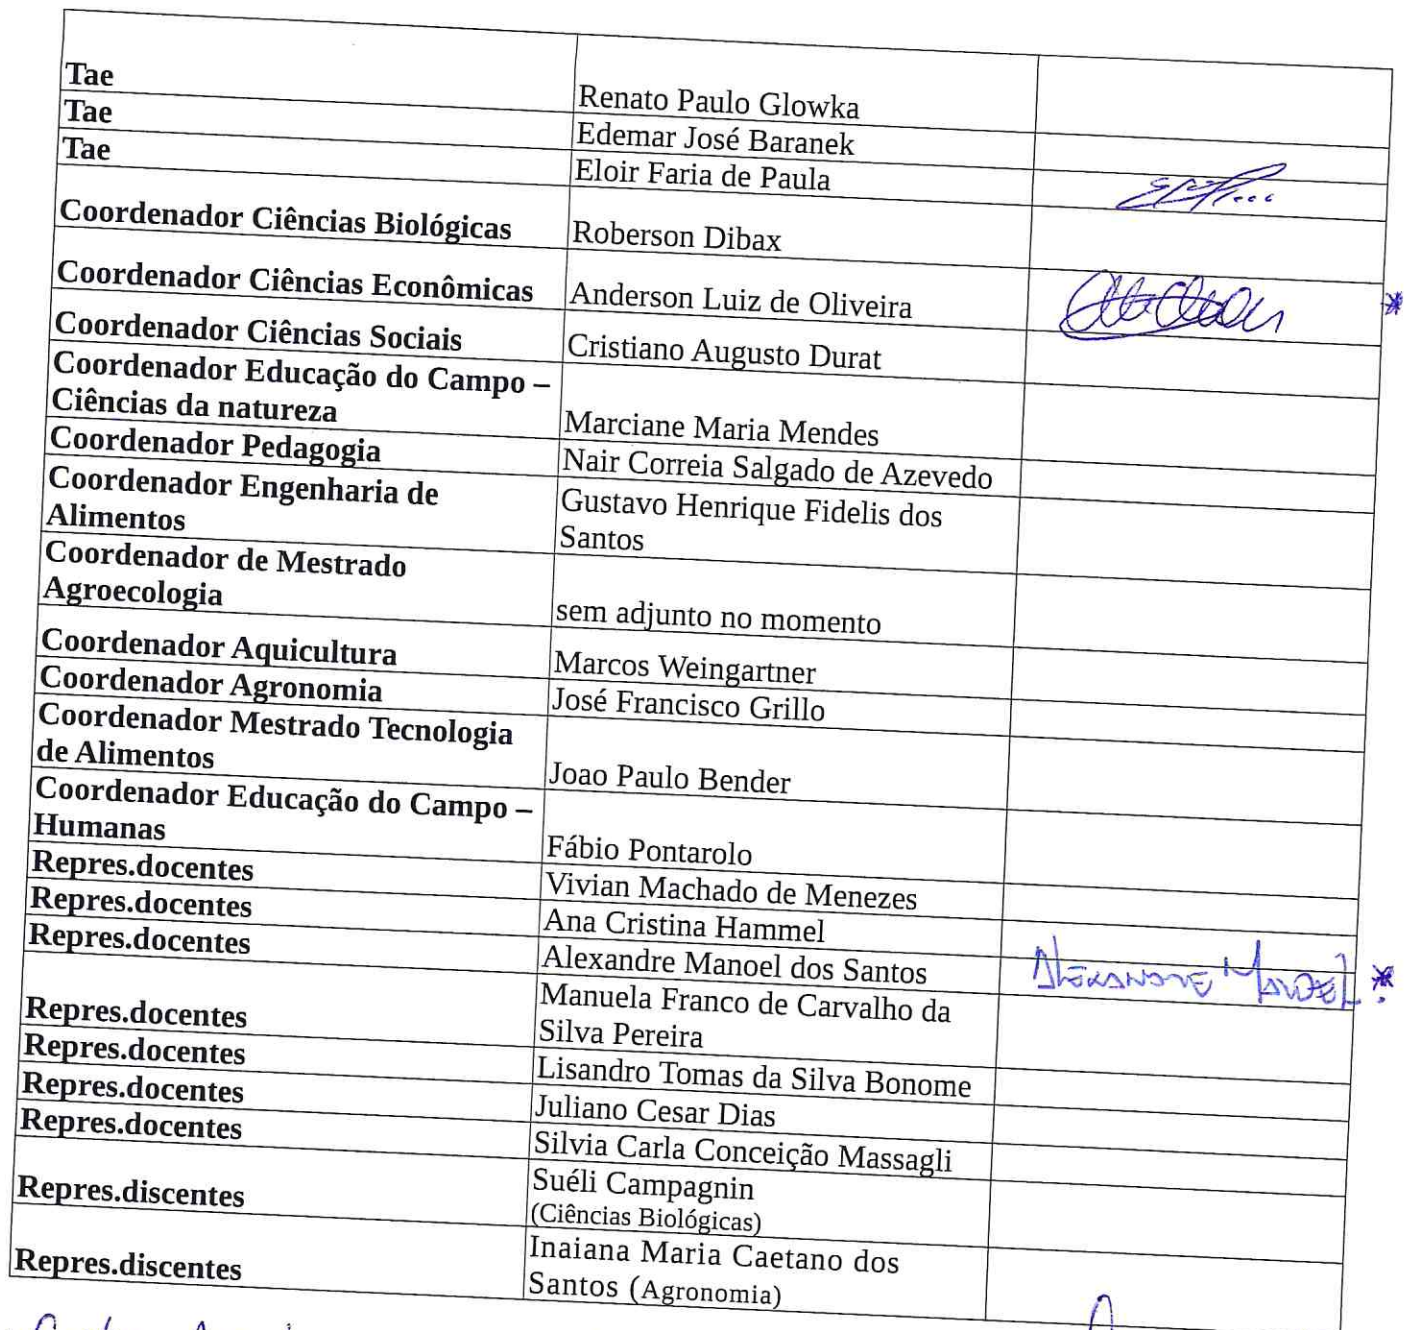 Tae
Renato Paulo Glowka
Tae
Edemar José Baranek
Tae
Eloir Faria de Paula
Coordenador Ciências Biológicas
Roberson Dibax
Coordenador Ciências Econômicas
Anderson Luiz de Oliveira
*
Coordenador Ciências Sociais
Cristiano Augusto Durat
Coordenador Educação do Campo –
Ciências da natureza
Marciane Maria Mendes
Coordenador Pedagogia
Nair Correia Salgado de Azevedo
Coordenador Engenharia de
Alimentos
Gustavo Henrique Fidelis dos
Santos
Coordenador de Mestrado
Agroecologia
sem adjunto no momento
Coordenador Aquicultura
Marcos Weingartner
Coordenador Agronomia
José Francisco Grillo
Coordenador Mestrado Tecnologia
de Alimentos
Joao Paulo Bender
Coordenador Educação do Campo –
Humanas
Fábio Pontarolo
Repres.docentes
Vivian Machado de Menezes
Repres.docentes
Ana Cristina Hammel
Repres.docentes
Alexandre Manoel dos Santos
ALEXANDRE MANOEL *
Repres.docentes
Manuela Franco de Carvalho da
Silva Pereira
Repres.docentes
Lisandro Tomas da Silva Bonome
Repres.docentes
Juliano Cesar Dias
Repres.docentes
Silvia Carla Conceição Massagli
Repres.discentes
Suéli Campagnin
(Ciências Biológicas)
Repres.discentes
Inaiana Maria Caetano dos
Santos (Agronomia)